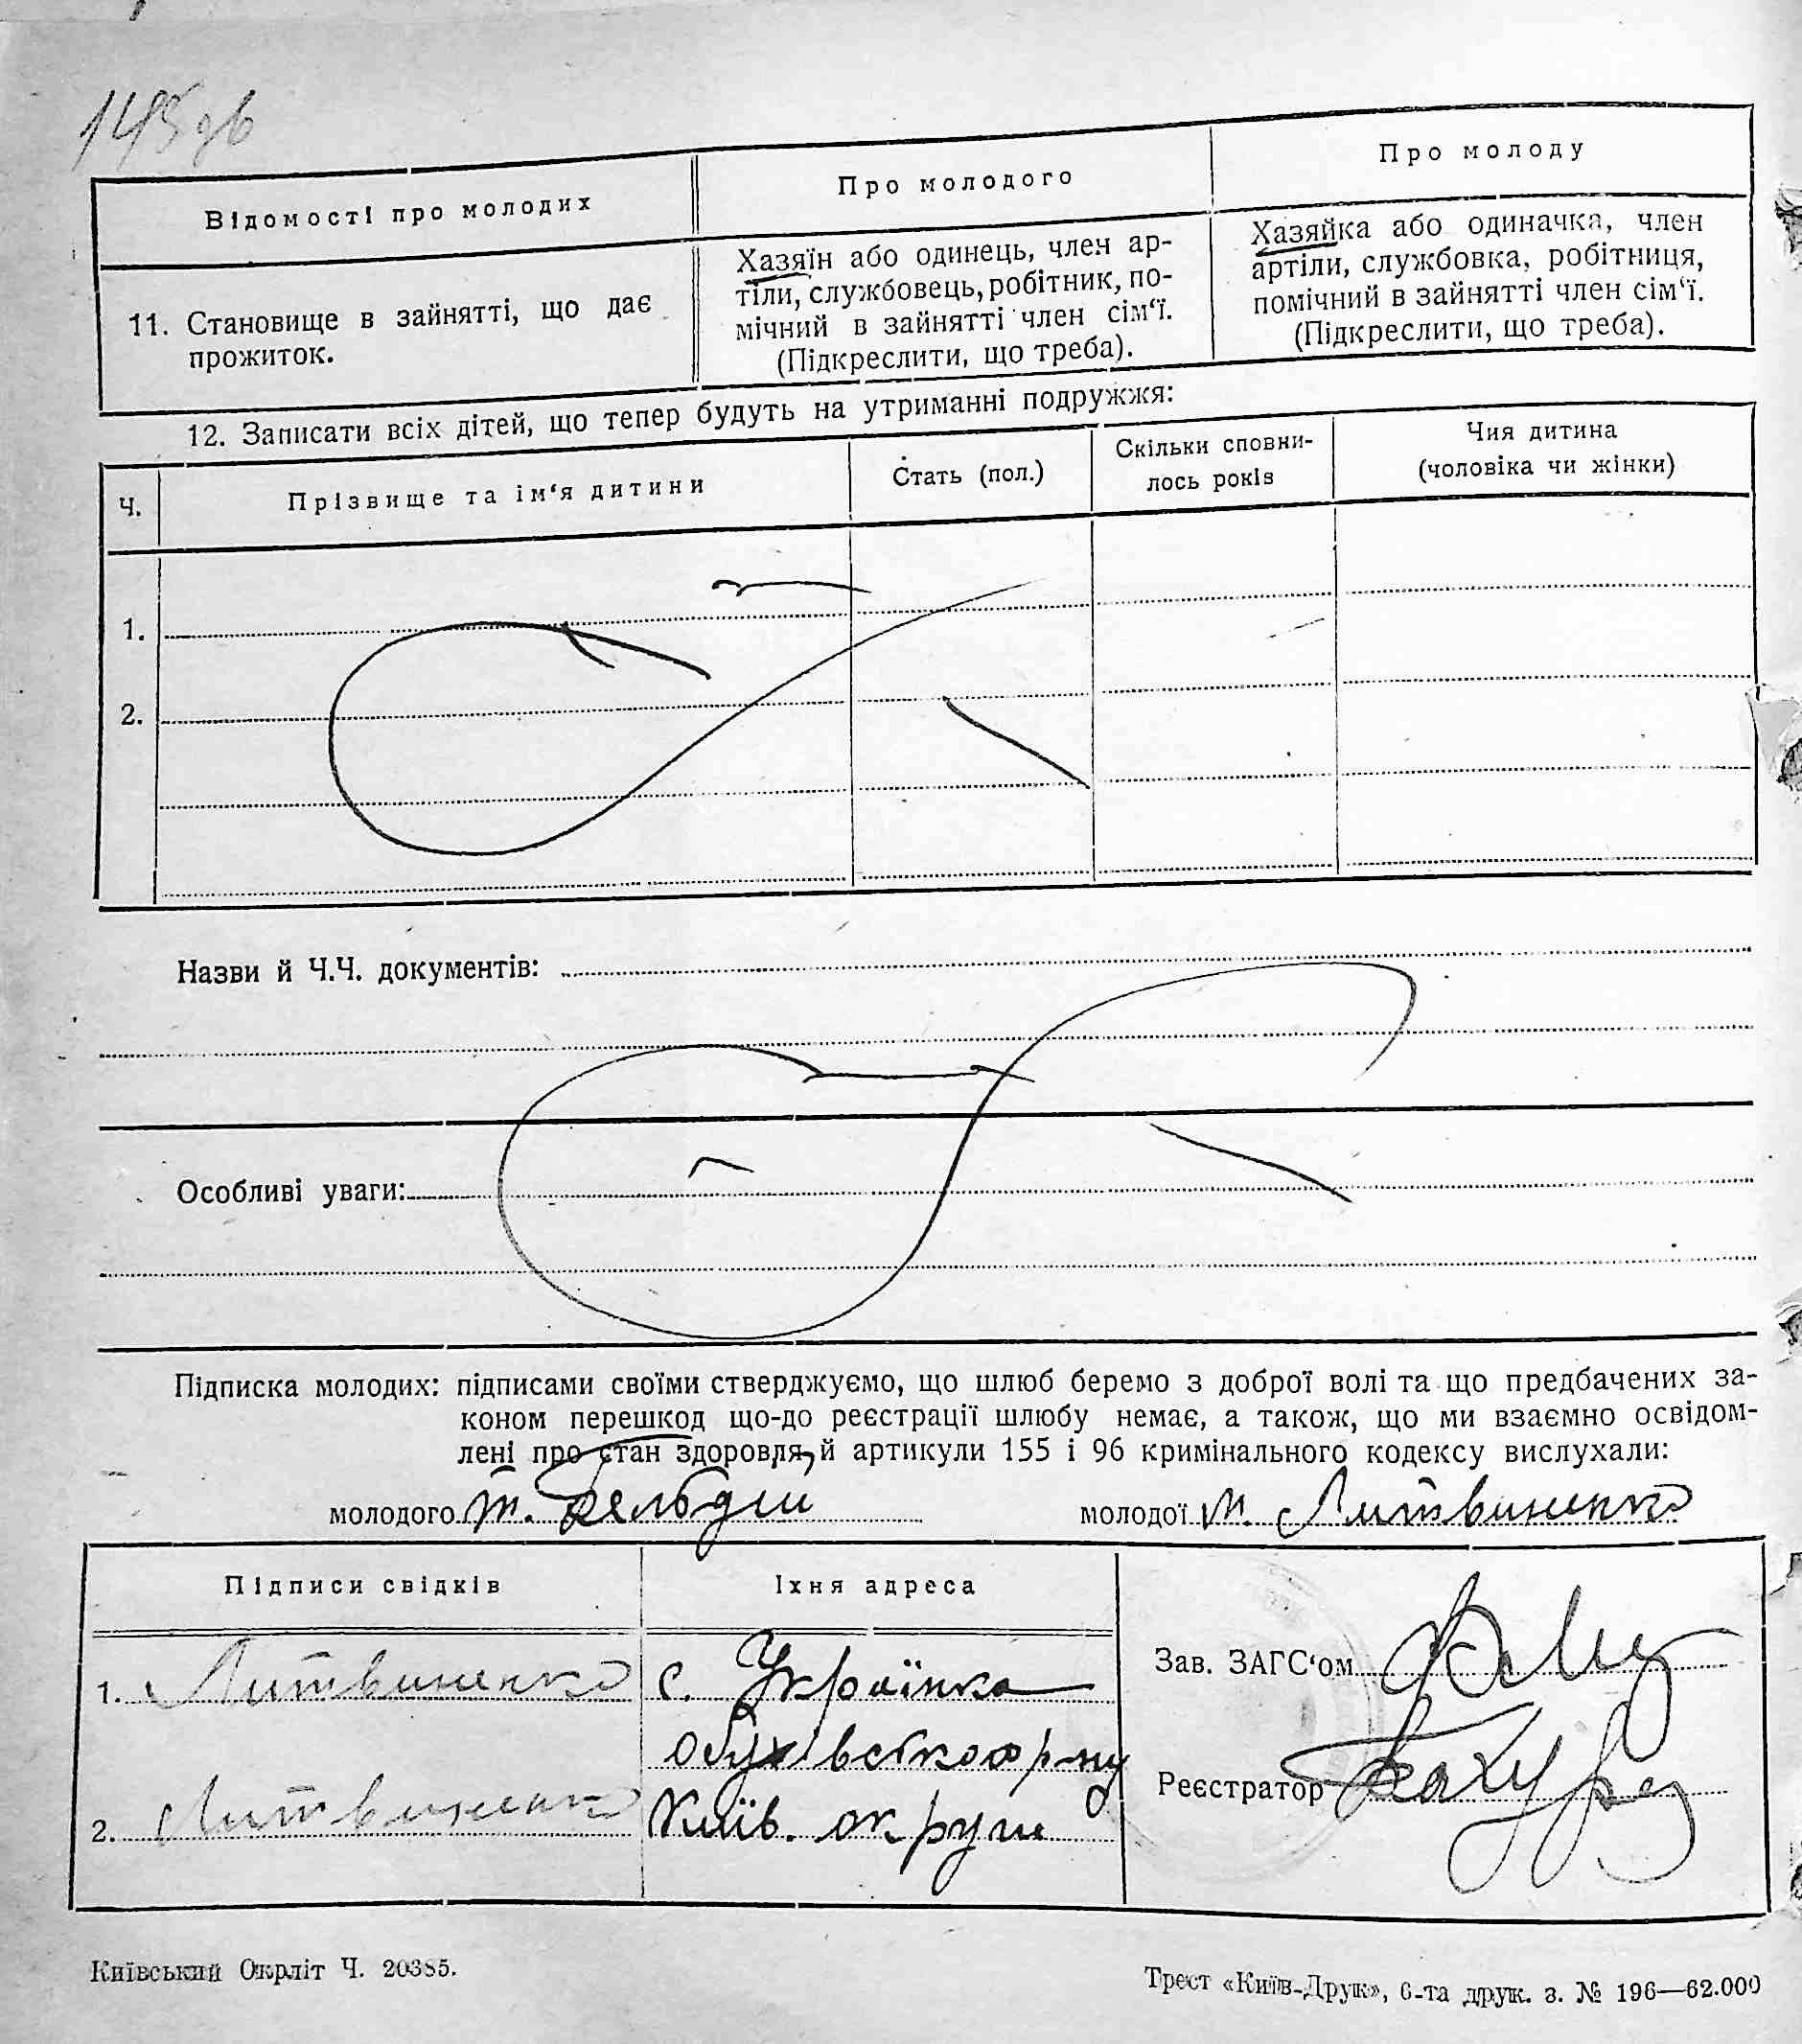 145 зв
Відомості про молодих
Про молодого
Про молоду
11. Становище в зайнятті, що дає
прожиток.
Хазяїн або одинець, член ар-
тіли, службовець, робітник, по-
мічний в зайнятті член сім‘ї.
(Підкреслити, що треба).
Хазяйка або одиначка, член
артіли, службовка, робітниця,
помічний в зайнятті член сім‘ї.
(Підкреслити, що треба).
12. Записати всіх дітей, що тепер будуть на утриманні подружжя:
Ч.
Прізвище та ім‘я дитини
Стать (пол.)
Скільки сповни-
лось років
Чия дитина
(чоловіка чи жінки)
1.
2.
Назви й Ч.Ч. документів:
Особливі уваги:
Підписка молодих: підписами своїми стверджуємо, що шлюб беремо з доброї волі та що предбачених за-
коном перешкод що-до реєстрації шлюбу немає, а також, що ми взаємно освідом-
лені про стан здоровля, й артикули 155 і 96 кримінального кодексу вислухали:
молодого
молодої М. Литвиненко
Підписи свідків
Їхня адреса
1. Литвиненко
с. Українка
Обухівського р-ну
2. Литвиненко
Київ. округи
Зав. ЗАГС‘ом
Реєстратор
Київський Окрліт Ч. 20385.
Трест «Київ-Друк», 6-та друк. з. № 196—62.000